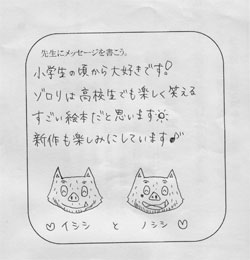 先生にメッセージを書こう。
小学生の頃から大好きです!
ゾロリは高校生でも楽しく笑える
すごい絵本だと思います
新作も楽しみにしています
♡イシシ と ノシシ♡